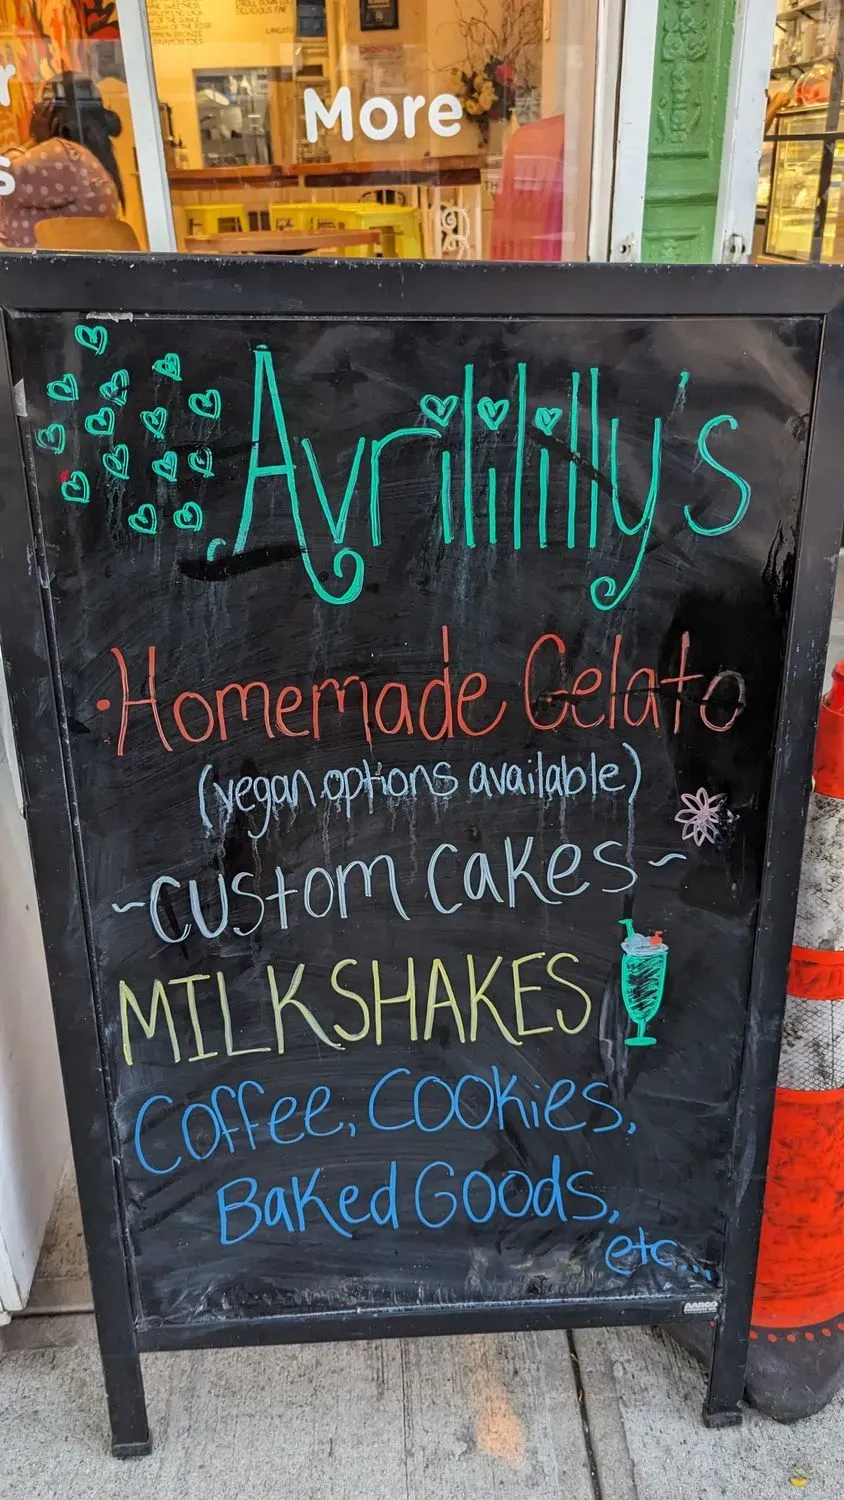 More
Avrilililly's
Homemade Gelato
(vegan options available)
~Custom Cakes~
MILKSHAKES
Coffee, Cookies,
Baked Goods,
etc...